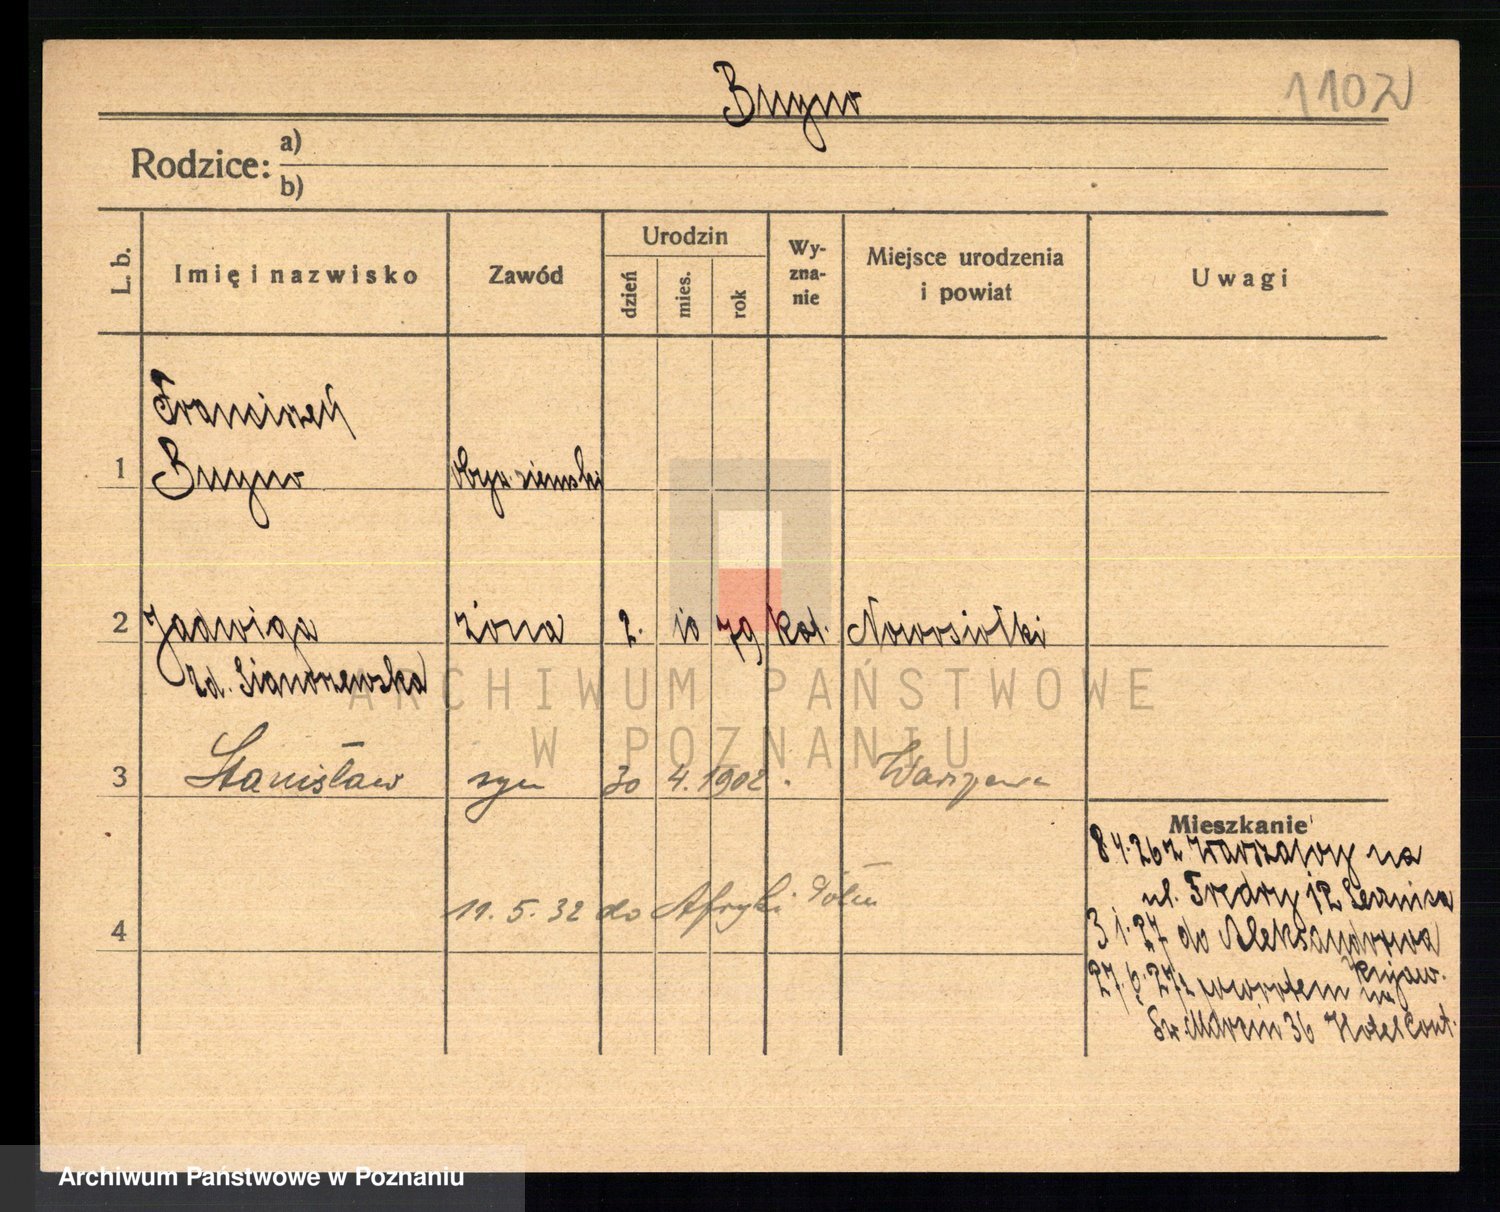 Buyno
1102
Rodzice: a)
b)
L. b.
Imię i nazwisko
Zawód
Urodzin
dzień
mies.
rok
Wy-
zna-
nie
Miejsce urodzenia
i powiat
Uwagi
Franciszek
1 Buyno obyw. ziemski
2 Jadwiga żona 2. 10 79 kat. Nowosiółki
zd.
3 Stanisław syn 30 4. 1902 Warszawa
Mieszkanie
8 4. 26 z Warszawy na
ul. Fredry 12
11. 5. 32 do Afryki
3 1. 27 do Aleksandrowa
4
kujaw.
27. 6. 27 z powrotem na
Św. Marcin 36 Hotel Cont.
ARCHIWUM PAŃSTWOWE
W POZNANIU
Archiwum Państwowe w Poznaniu